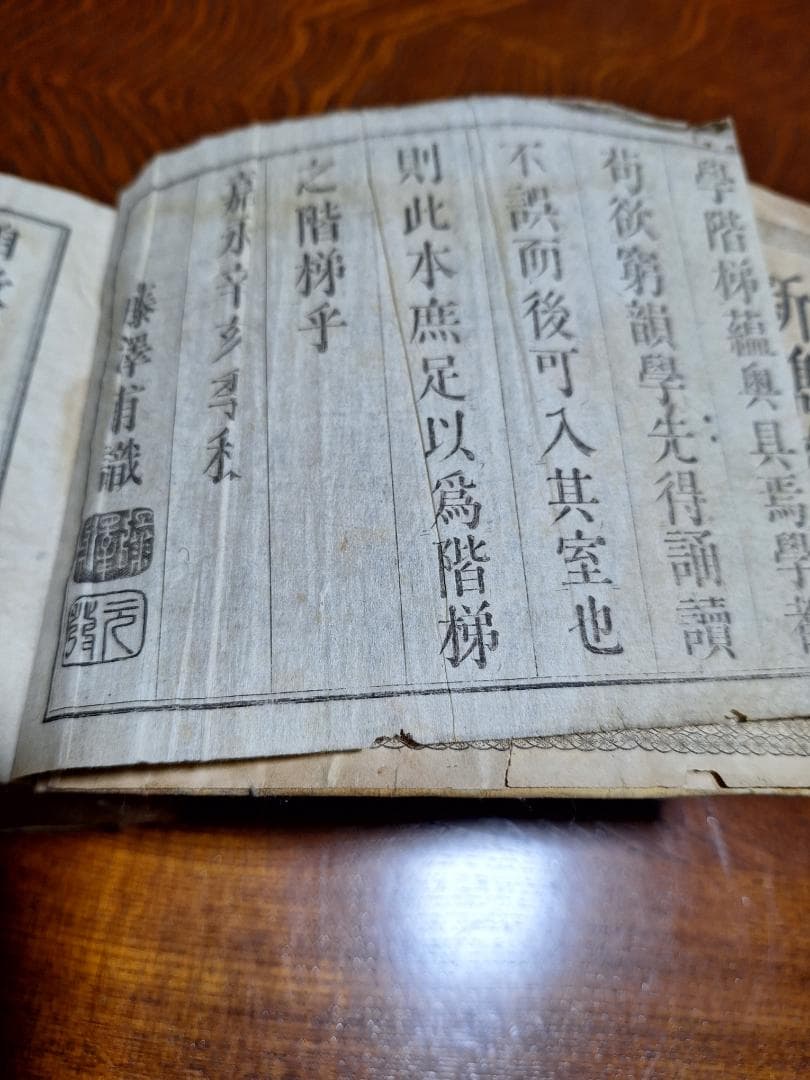 學階梯蘊奥具焉學者
苟欲窮韻學先得誦讀
不誤而後可入其室也
則此本庶足以爲階梯
之階梯乎
嘉永辛亥秋
藤澤甫識
元發